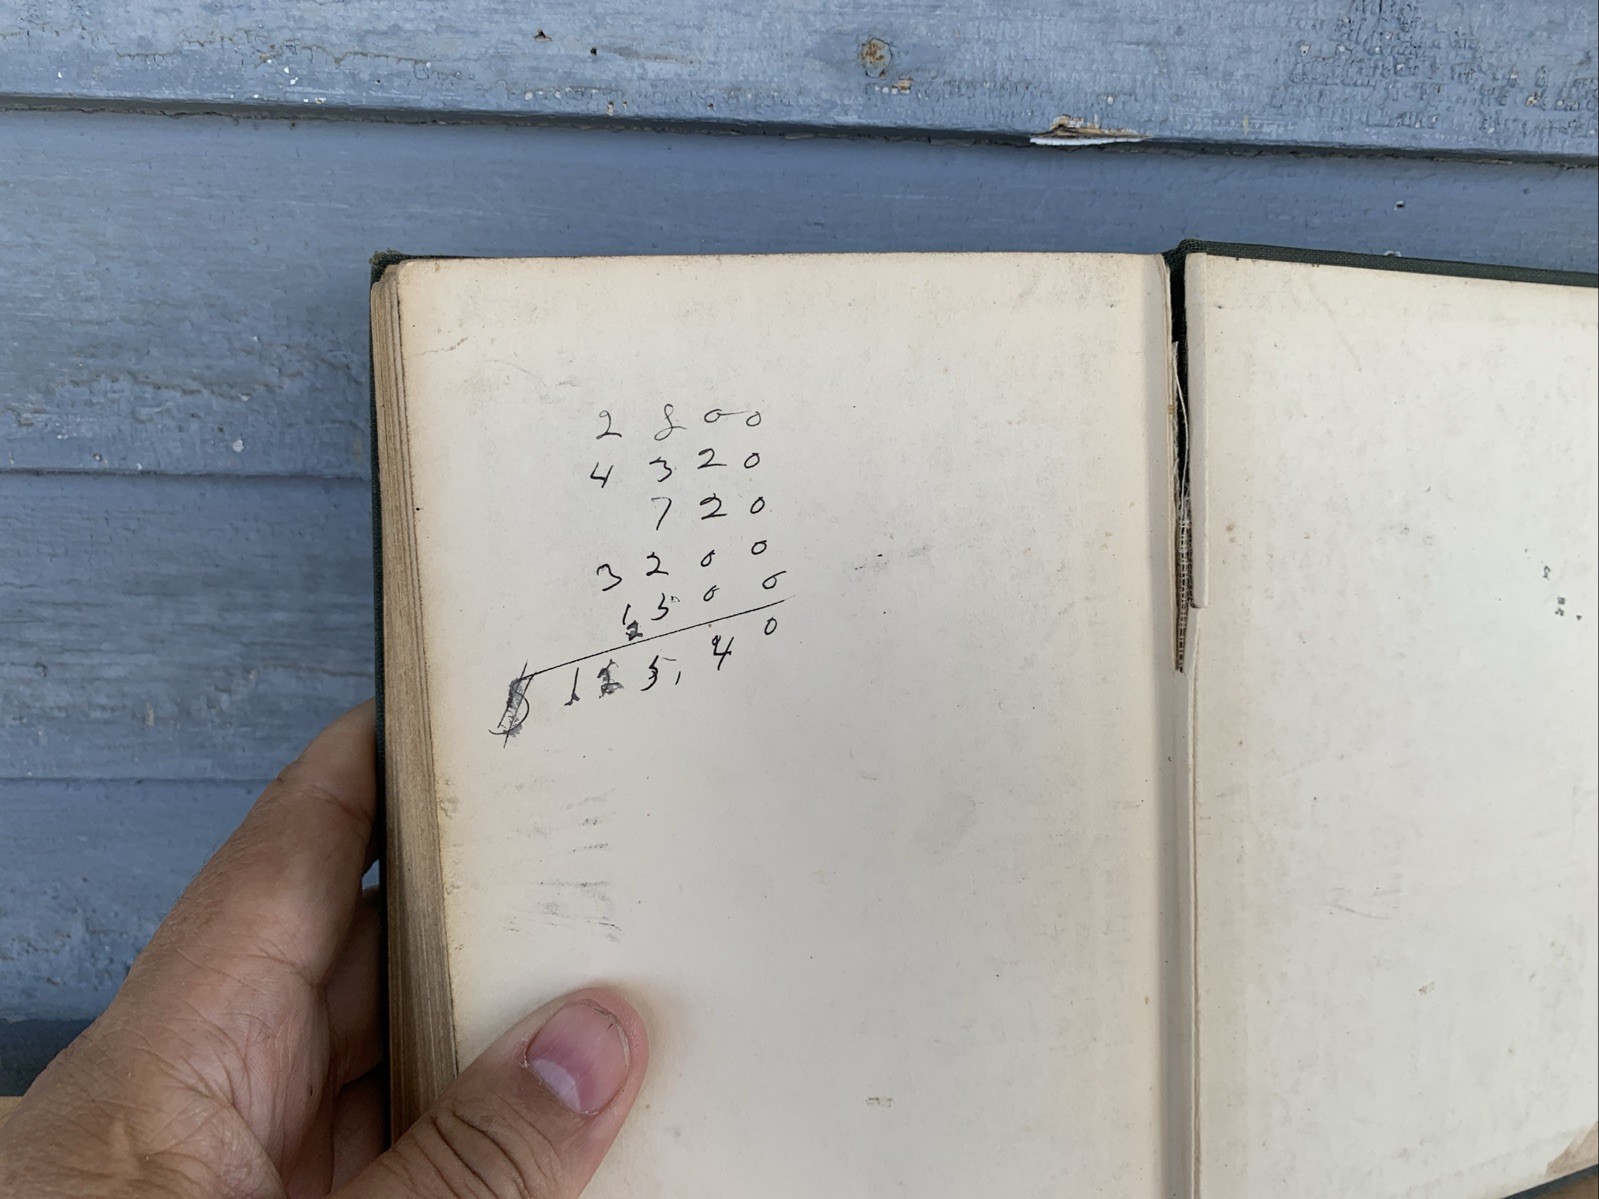 2800
4320
720
3200
1500
2
$125,40